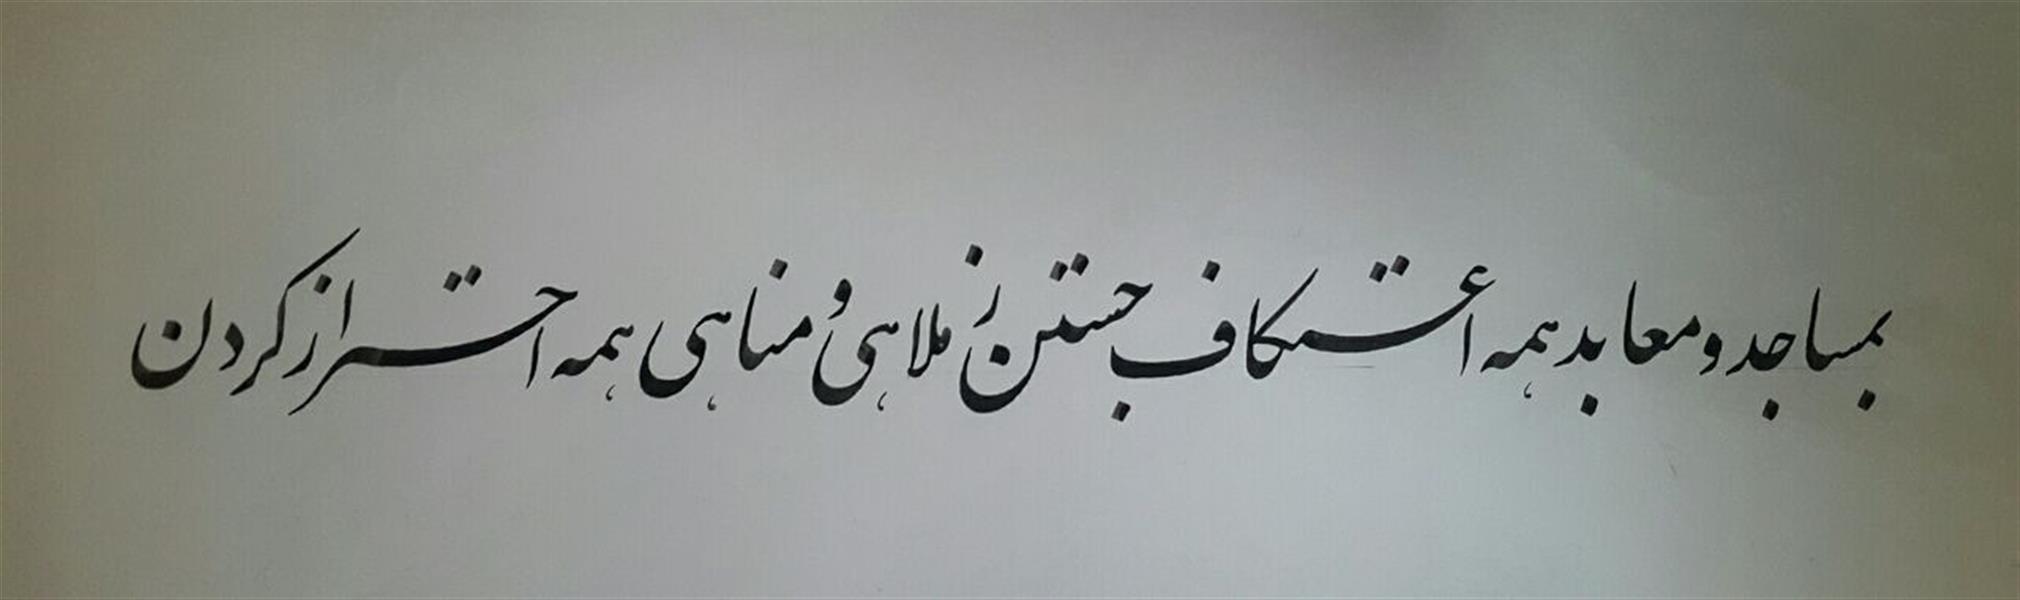 بمساجد و معابد همه اعتکاف جستن ز ملاهی و مناهی همه احتراز کردن